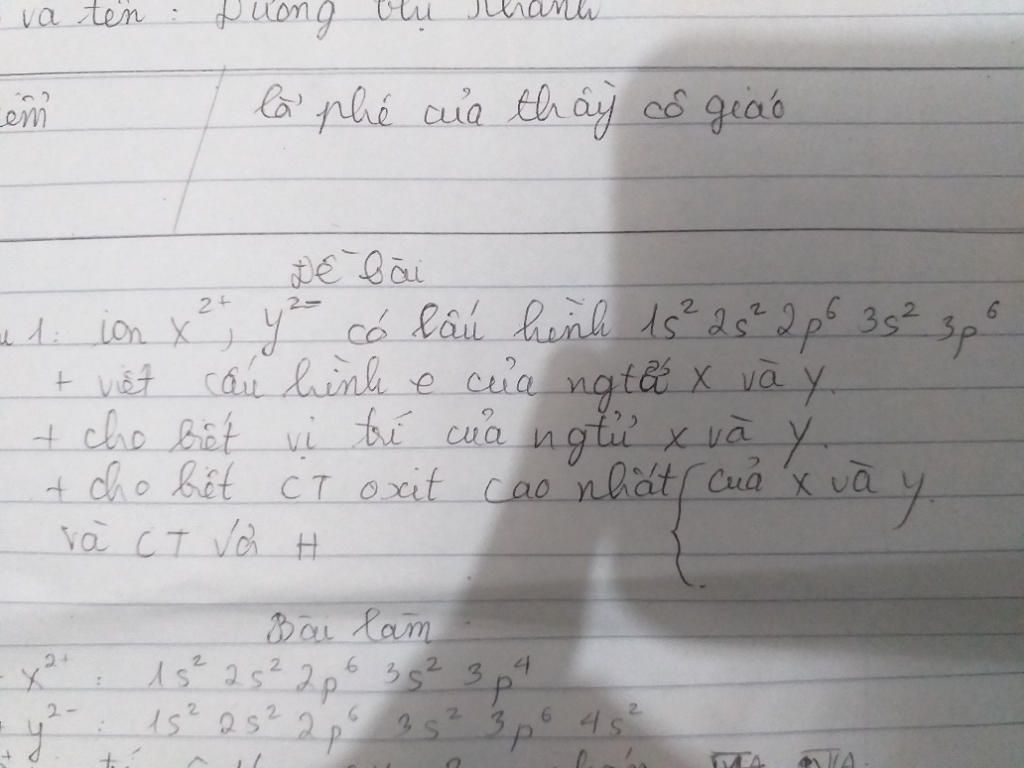 và tên : Dương thị Khánh
iểm
lời phê của thầy cô giáo
Đề bài
u 1: ion X²⁺, y²⁻ có cấu hình 1s² 2s² 2p⁶ 3s² 3p⁶
+ viết cấu hình e của ngtử X và y.
+ cho biết vị trí của ngtử X và y.
+ cho biết CT oxit cao nhất { của X và y.
và CT với H
Bài làm
+ X²⁺ : 1s² 2s² 2p⁶ 3s² 3p⁴
+ y²⁻ : 1s² 2s² 2p⁶ 3s² 3p⁶ 4s²